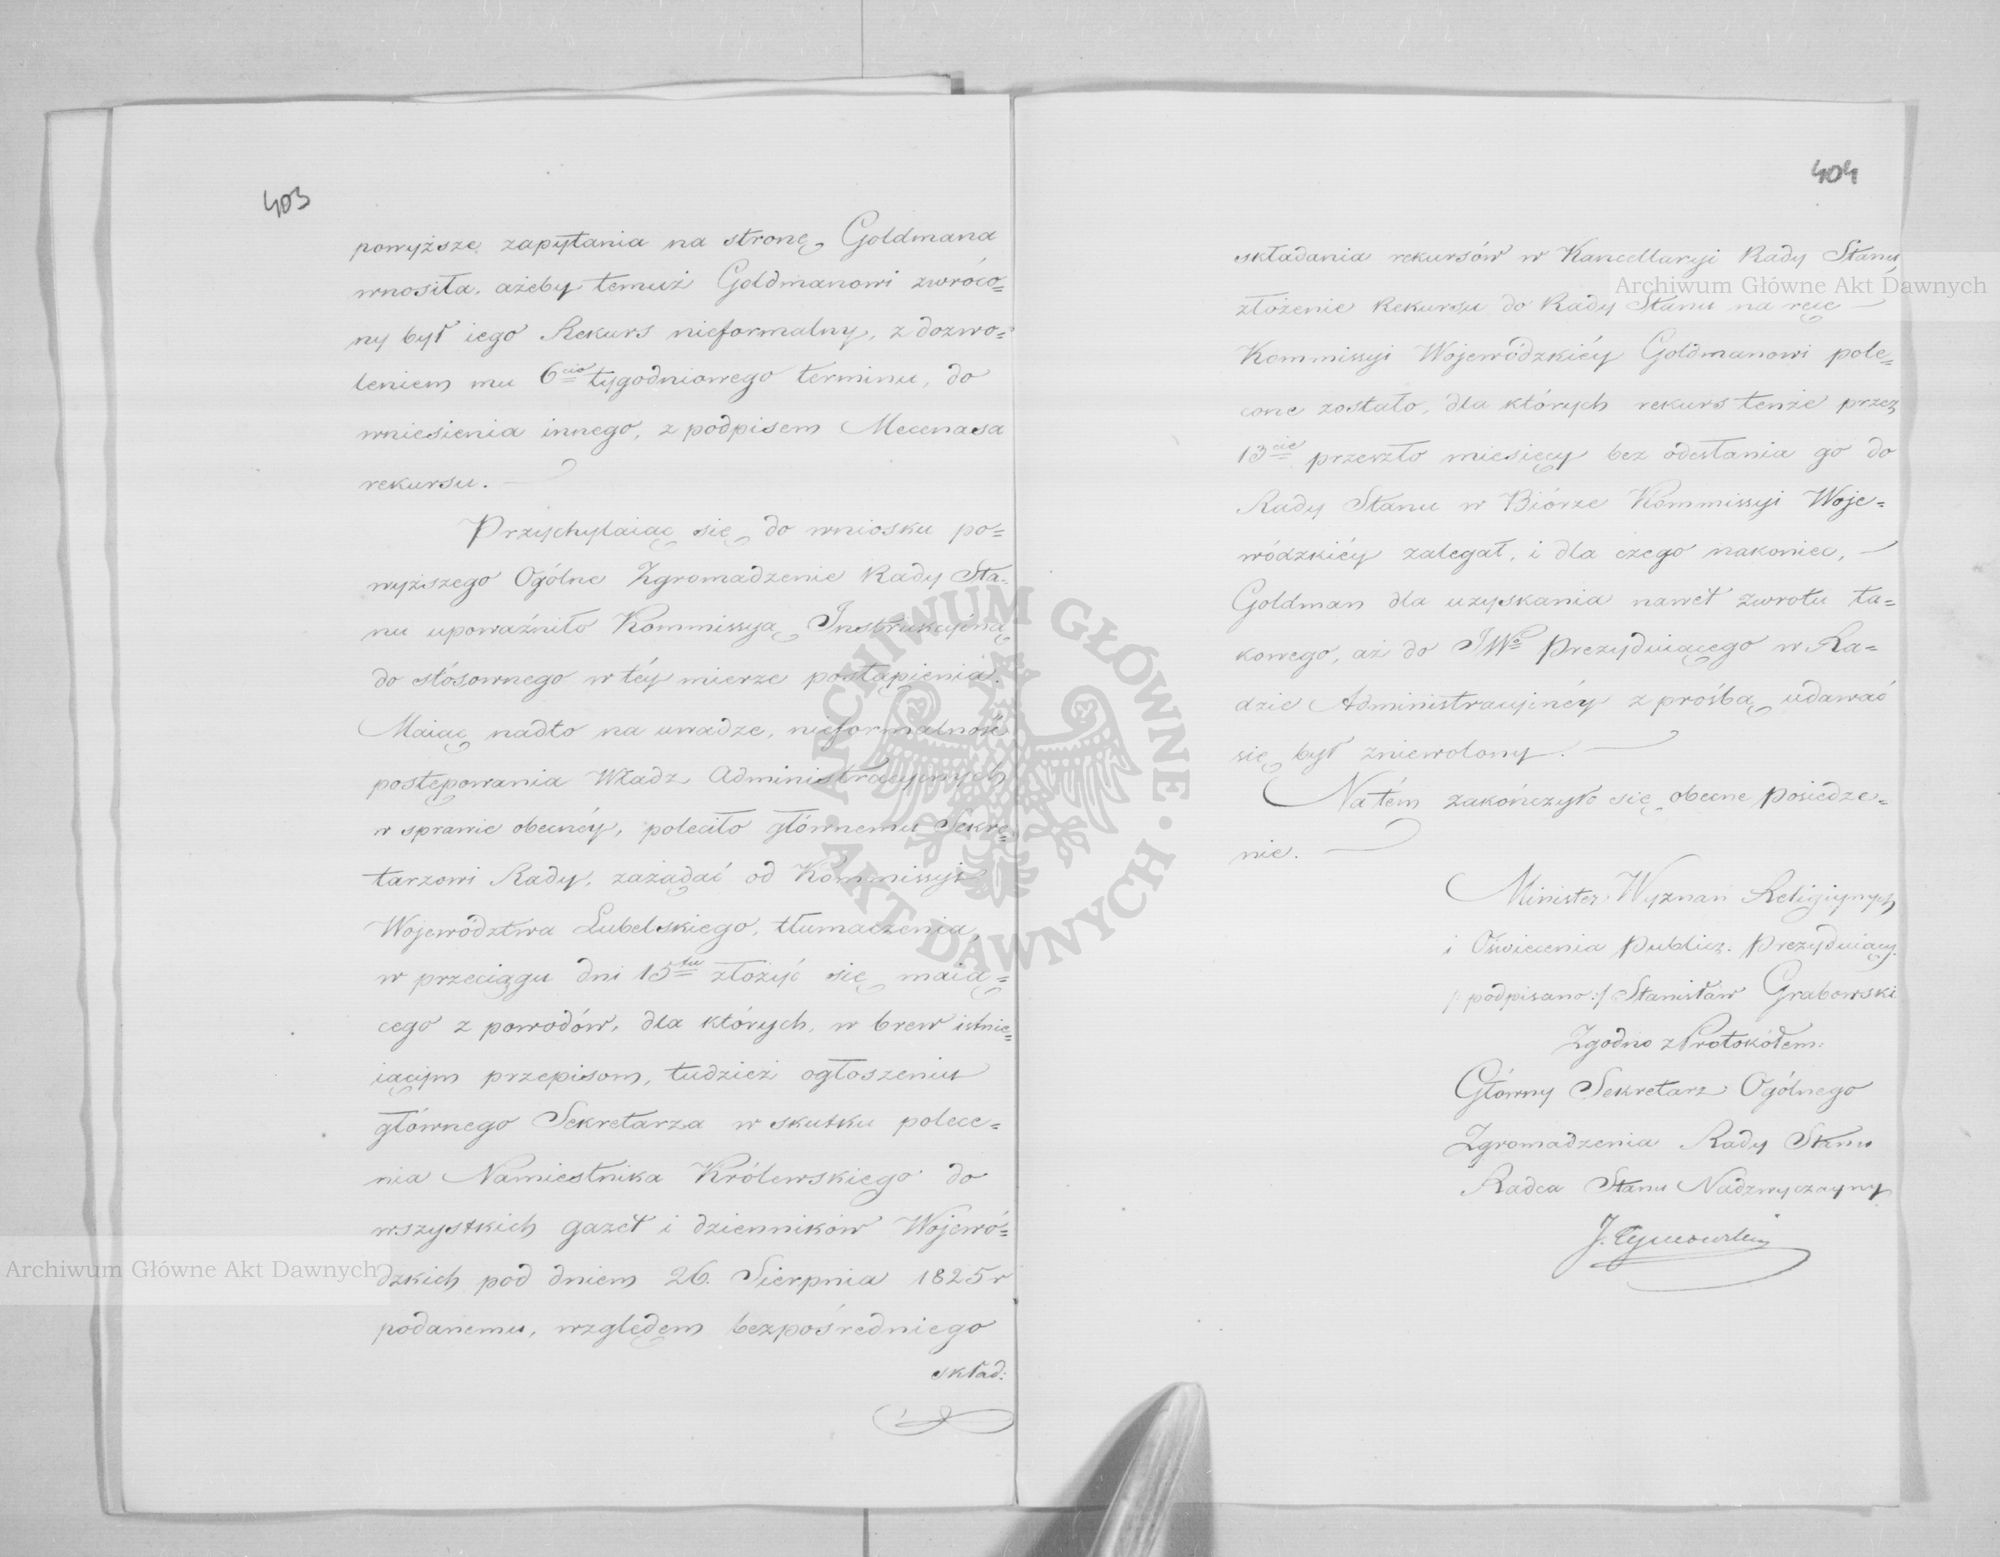 403
powyższe zapytania na stronę Goldmana
wnosiła, ażeby temuż Goldmanowi zwróco=
ny był iego Rekurs nieformalny, z dozwo=
leniem mu 6cio tygodniowego terminu, do
wniesienia innego, z podpisem Mecenasa
rekursu.
Przychylaiąc się do wniosku po=
wyższego Ogólne Zgromadzenie Rady Sta=
nu upoważniło Kommissyą Instrukcyiną
do stósownego w téy mierze postąpienia.
Maiąc nadto na uwadze, nieformalność
postępowania Władz Administracyinych
w sprawie obecnéy, poleciło głównemu Sekre=
tarzowi Rady, zażądać od Kommissyi
Województwa Lubelskiego, tłumaczenia,
w przeciągu dni 15tu złożyć się maią=
cego z powodów, dla których, w brew istnie=
iącym przepisom, tudzież ogłoszeniu
głównego Sekretarza w skutku polece=
nia Namiestnika Królewskiego do
wszystkich gazet i dzienników Wojewó=
dzkich pod dniem 26. Sierpnia 1825 r
podanemu, względem bezpośredniego
skład:
404
składania rekursów w Kancellaryi Rady Stanu,
złożenie Rekursu do Rady Stanu na ręce
Kommissyi Wojewódzkiéy Goldmanowi pole=
cone zostało, dla których rekurs tenże przez
13cie przeszło miesięcy bez odesłania go do
Rady Stanu w Biórze Kommissyi Woje=
wódzkiéy zalegał, i dla czego nakoniec,
Goldman dla uzyskania nawet zwrotu ta=
kowego, aż do JWo Prezyduiącego w Ra=
dzie Administracyinéy z prośbą udawać
się był zniewolony.
Na tém zakończyło się obecne posiedze=
nie.
Minister Wyznań Religiynych
i Oświecenia Publicz: Prezyduiący
/: podpisano :/ Stanisław Grabowski
Zgodno z Protokółem:
Główny Sekretarz Ogólnego
Zgromadzenia Rady Stanu
Radca Stanu Nadzwyczayny
J. Tymowski
Archiwum Główne Akt Dawnych
Archiwum Główne Akt Dawnych
ARCHIWUM GŁÓWNE · AKT DAWNYCH ·